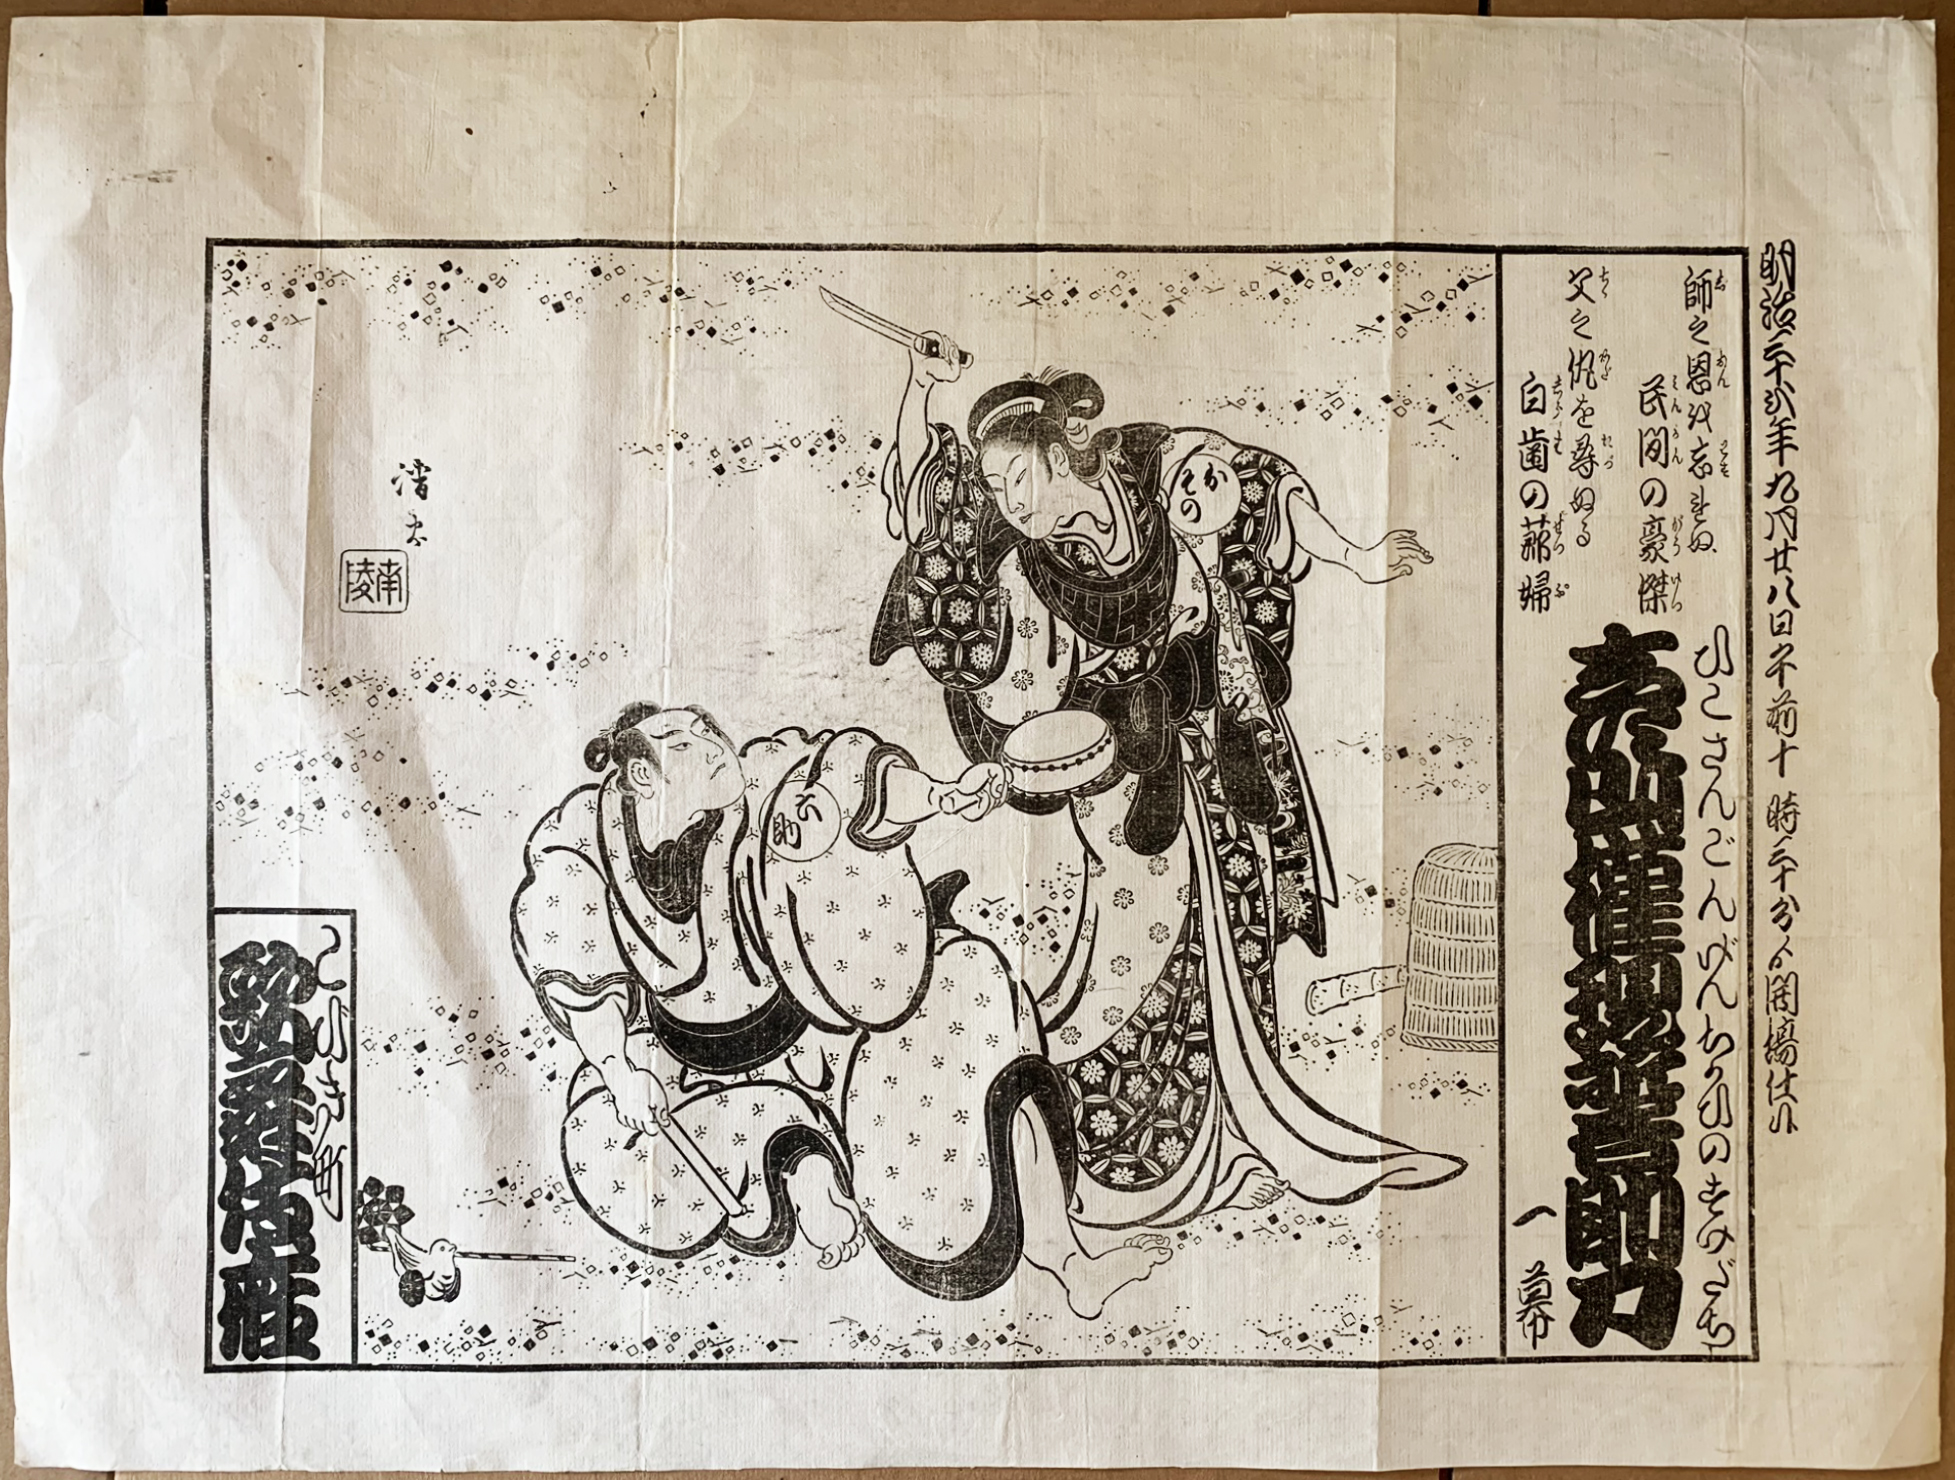 明治三十六年九月廿八日午前十時三十分ゟ開場仕候
師之恩を忘れぬ
民間の豪傑
父之仇を尋ぬる
白歯の節婦
ひこさんごんげんちかひのすけだち
彦山權現誓助力
一幕
おその
六助
清
南陵
こびき町
歌舞伎座